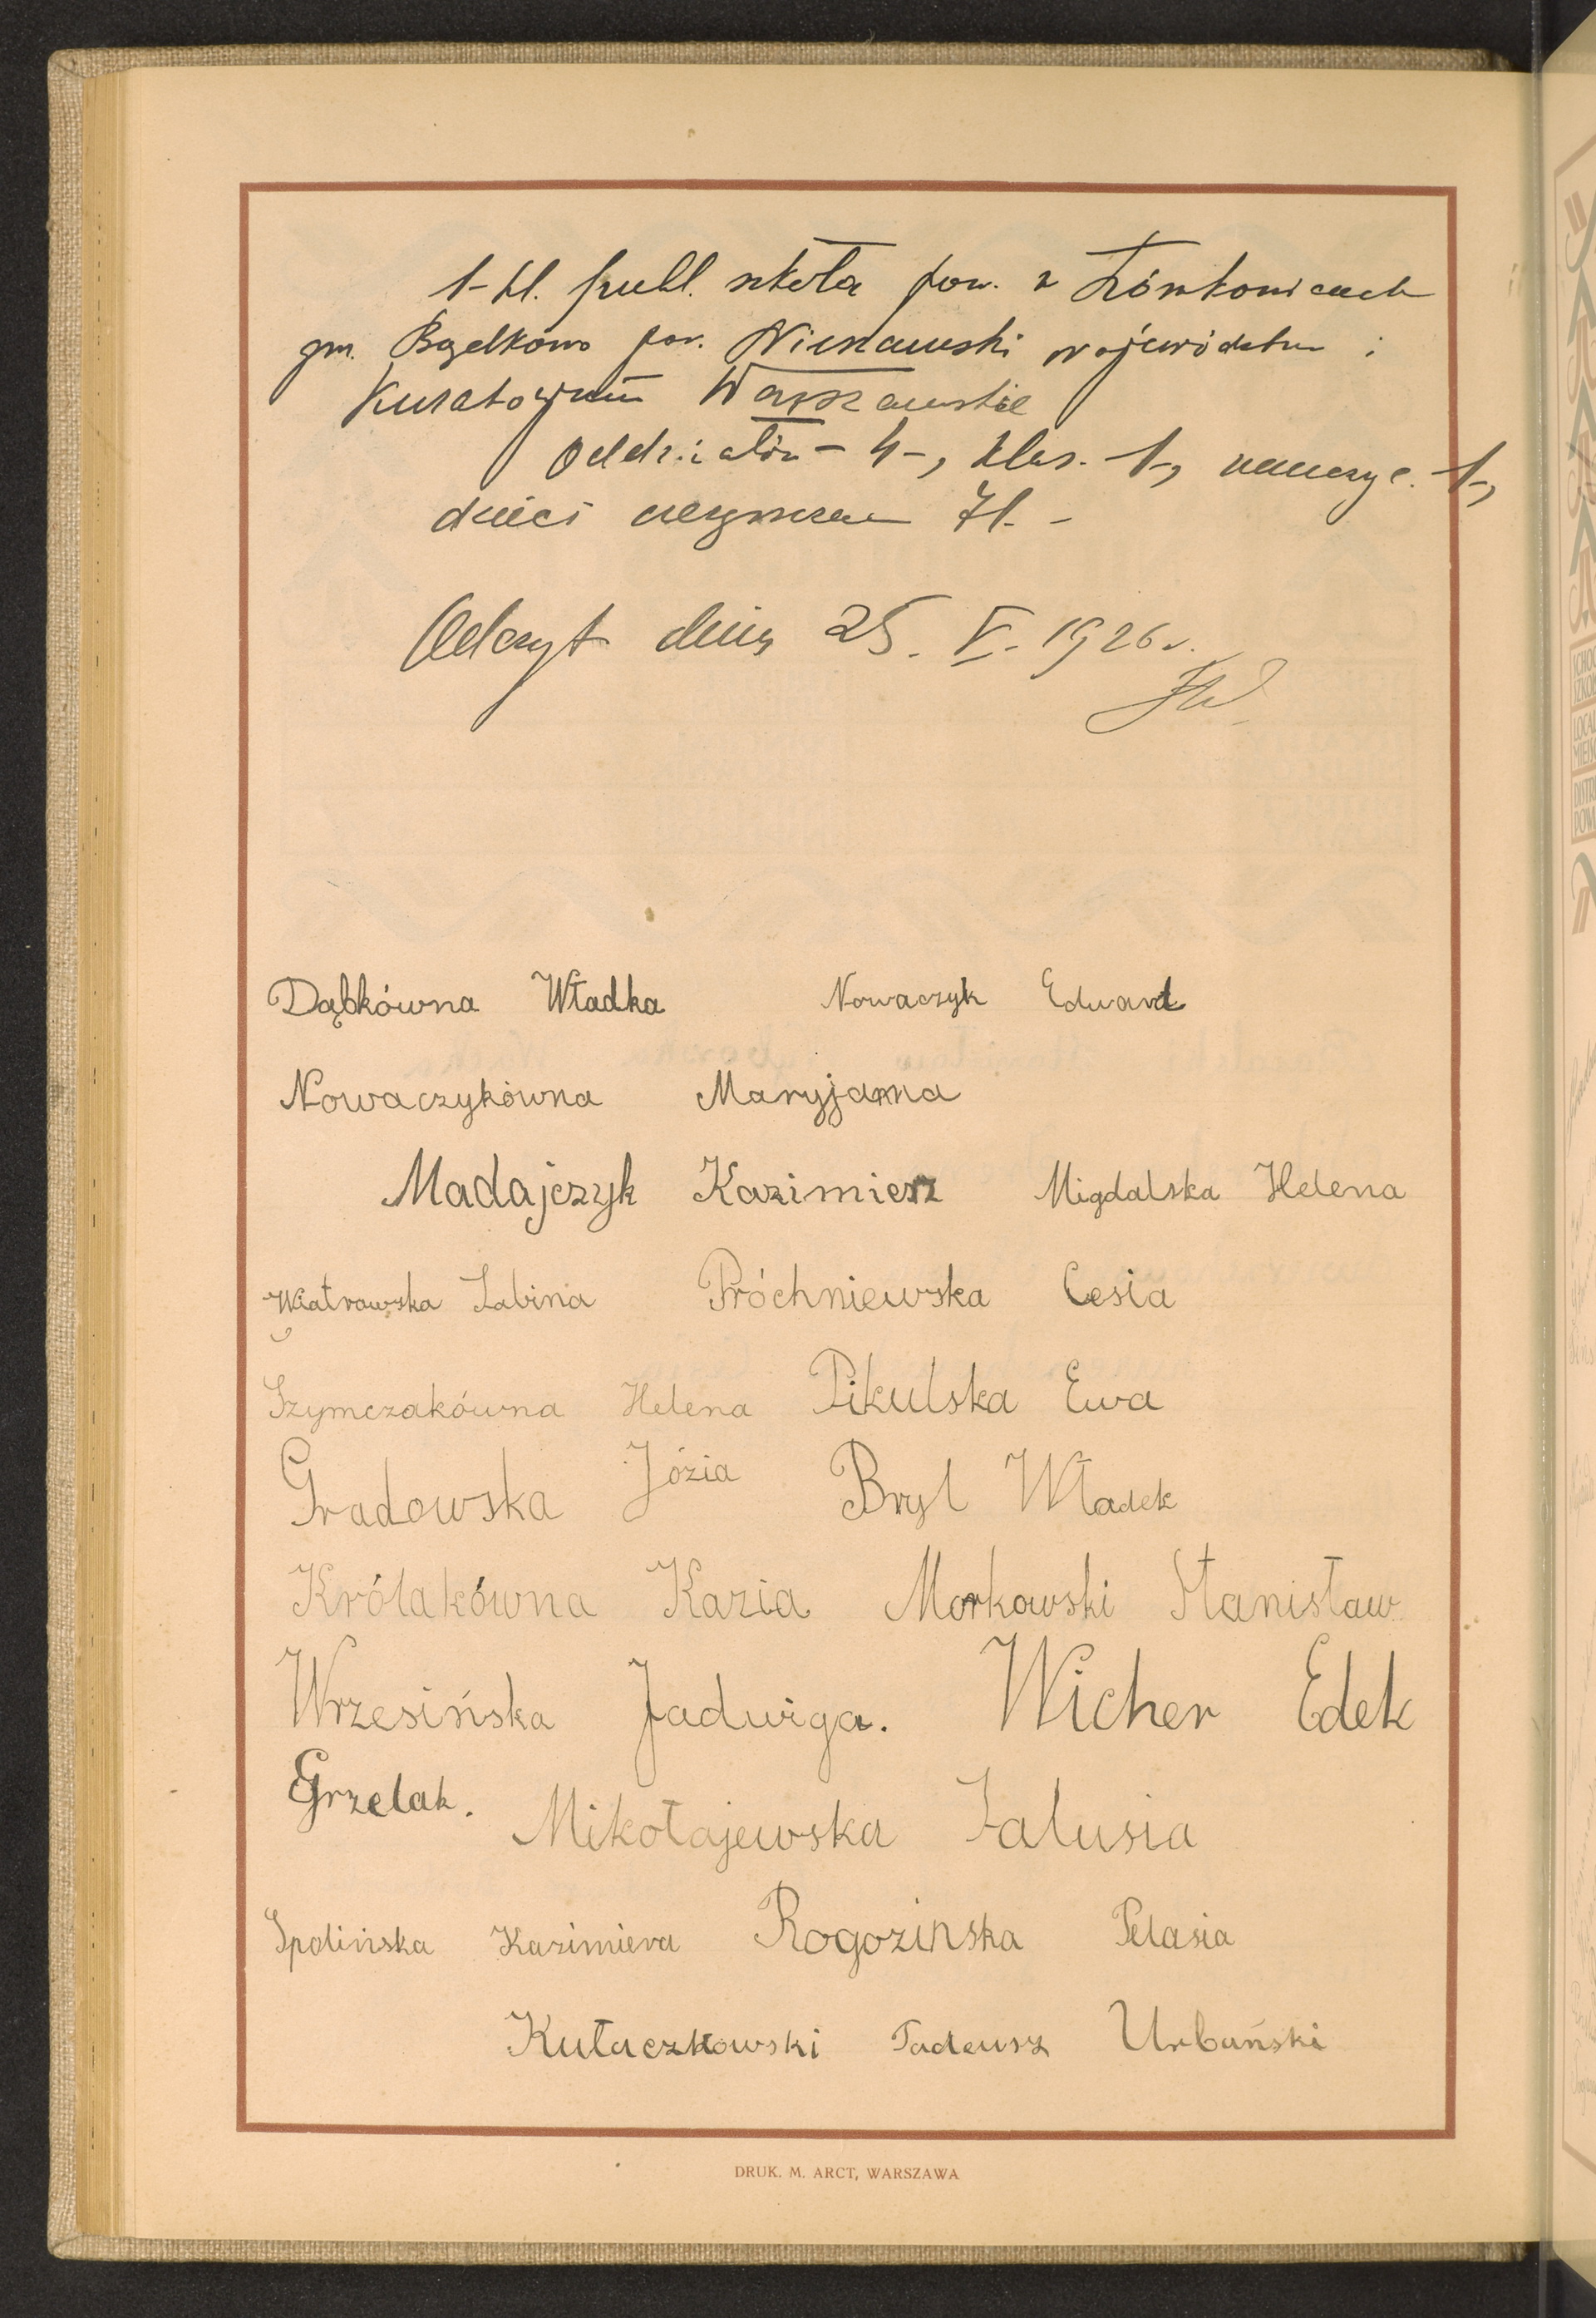 1-kl. publ. szkoła pow. w
gm. Bądkowo pow. Nieszawski województwo i
Kuratorjum Warszawskie
Oddziałów - 4-, klas. 1-, nauczyc. 1-,
dzieci uczęszcza 71. -
Odczyt dnia 25. V. 1926 r.
Dąbkówna Władka Nowaczyk Edward
Nowaczykówna Maryjanna
Madajczyk Kazimierz Migdalska Helena
Wiatrowska Sabina Próchniewska Cesia
Szymczakówna Helena Pikulska Ewa
Gradowska Józia Bryl Władek
Królakówna Kazia Morkowski Stanisław
Wrzesińska Jadwiga. Wicher Edek
Grzelak. Mikołajewska Salusia
Spolińska Kazimiera Rogozinska Pelasia
Kułaczkowski Tadeusz Urbański
DRUK. M. ARCT, WARSZAWA